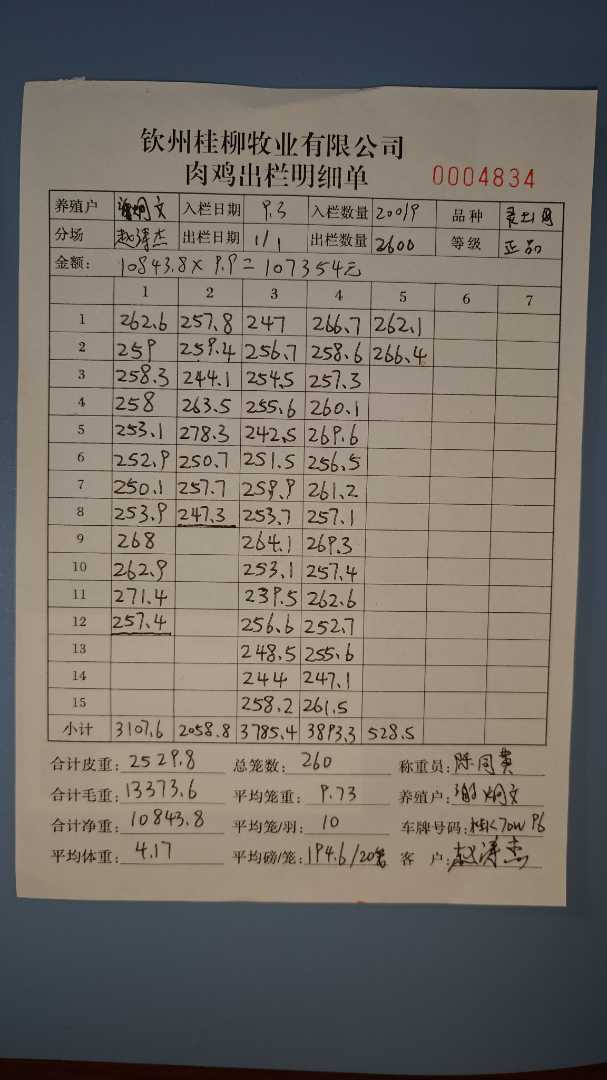 钦州桂柳牧业有限公司
肉鸡出栏明细单 0004834
养殖户 谢炯文 入栏日期 9.3 入栏数量 20019 品种
分场 赵涛杰 出栏日期 1/1 出栏数量 2600 等级 正品
金额: 10843.8×9.9=107354元
1 2 3 4 5 6 7
1 262.6 257.8 247 266.7 262.1
2 259 259.4 256.7 258.6 266.4
3 258.3 244.1 254.5 257.3
4 258 263.5 255.6 260.1
5 253.1 278.3 242.5 269.6
6 252.9 250.7 251.5 256.5
7 250.1 257.7 259.9 261.2
8 253.9 247.3 253.7 257.1
9 268 264.1 269.3
10 262.9 253.1 257.4
11 271.4 239.5 262.6
12 257.4 256.6 252.7
13 248.5 255.6
14 244 247.1
15 258.2 261.5
小计 3107.6 2058.8 3785.4 3893.3 528.5
合计皮重: 2529.8 总笼数: 260 称重员: 陈同贵
合计毛重: 13373.6 平均笼重: 9.73 养殖户: 谢炯文
合计净重: 10843.8 平均笼/羽: 10 车牌号码:
平均体重: 4.17 平均磅/笼: 194.6/20 客户: 赵涛杰